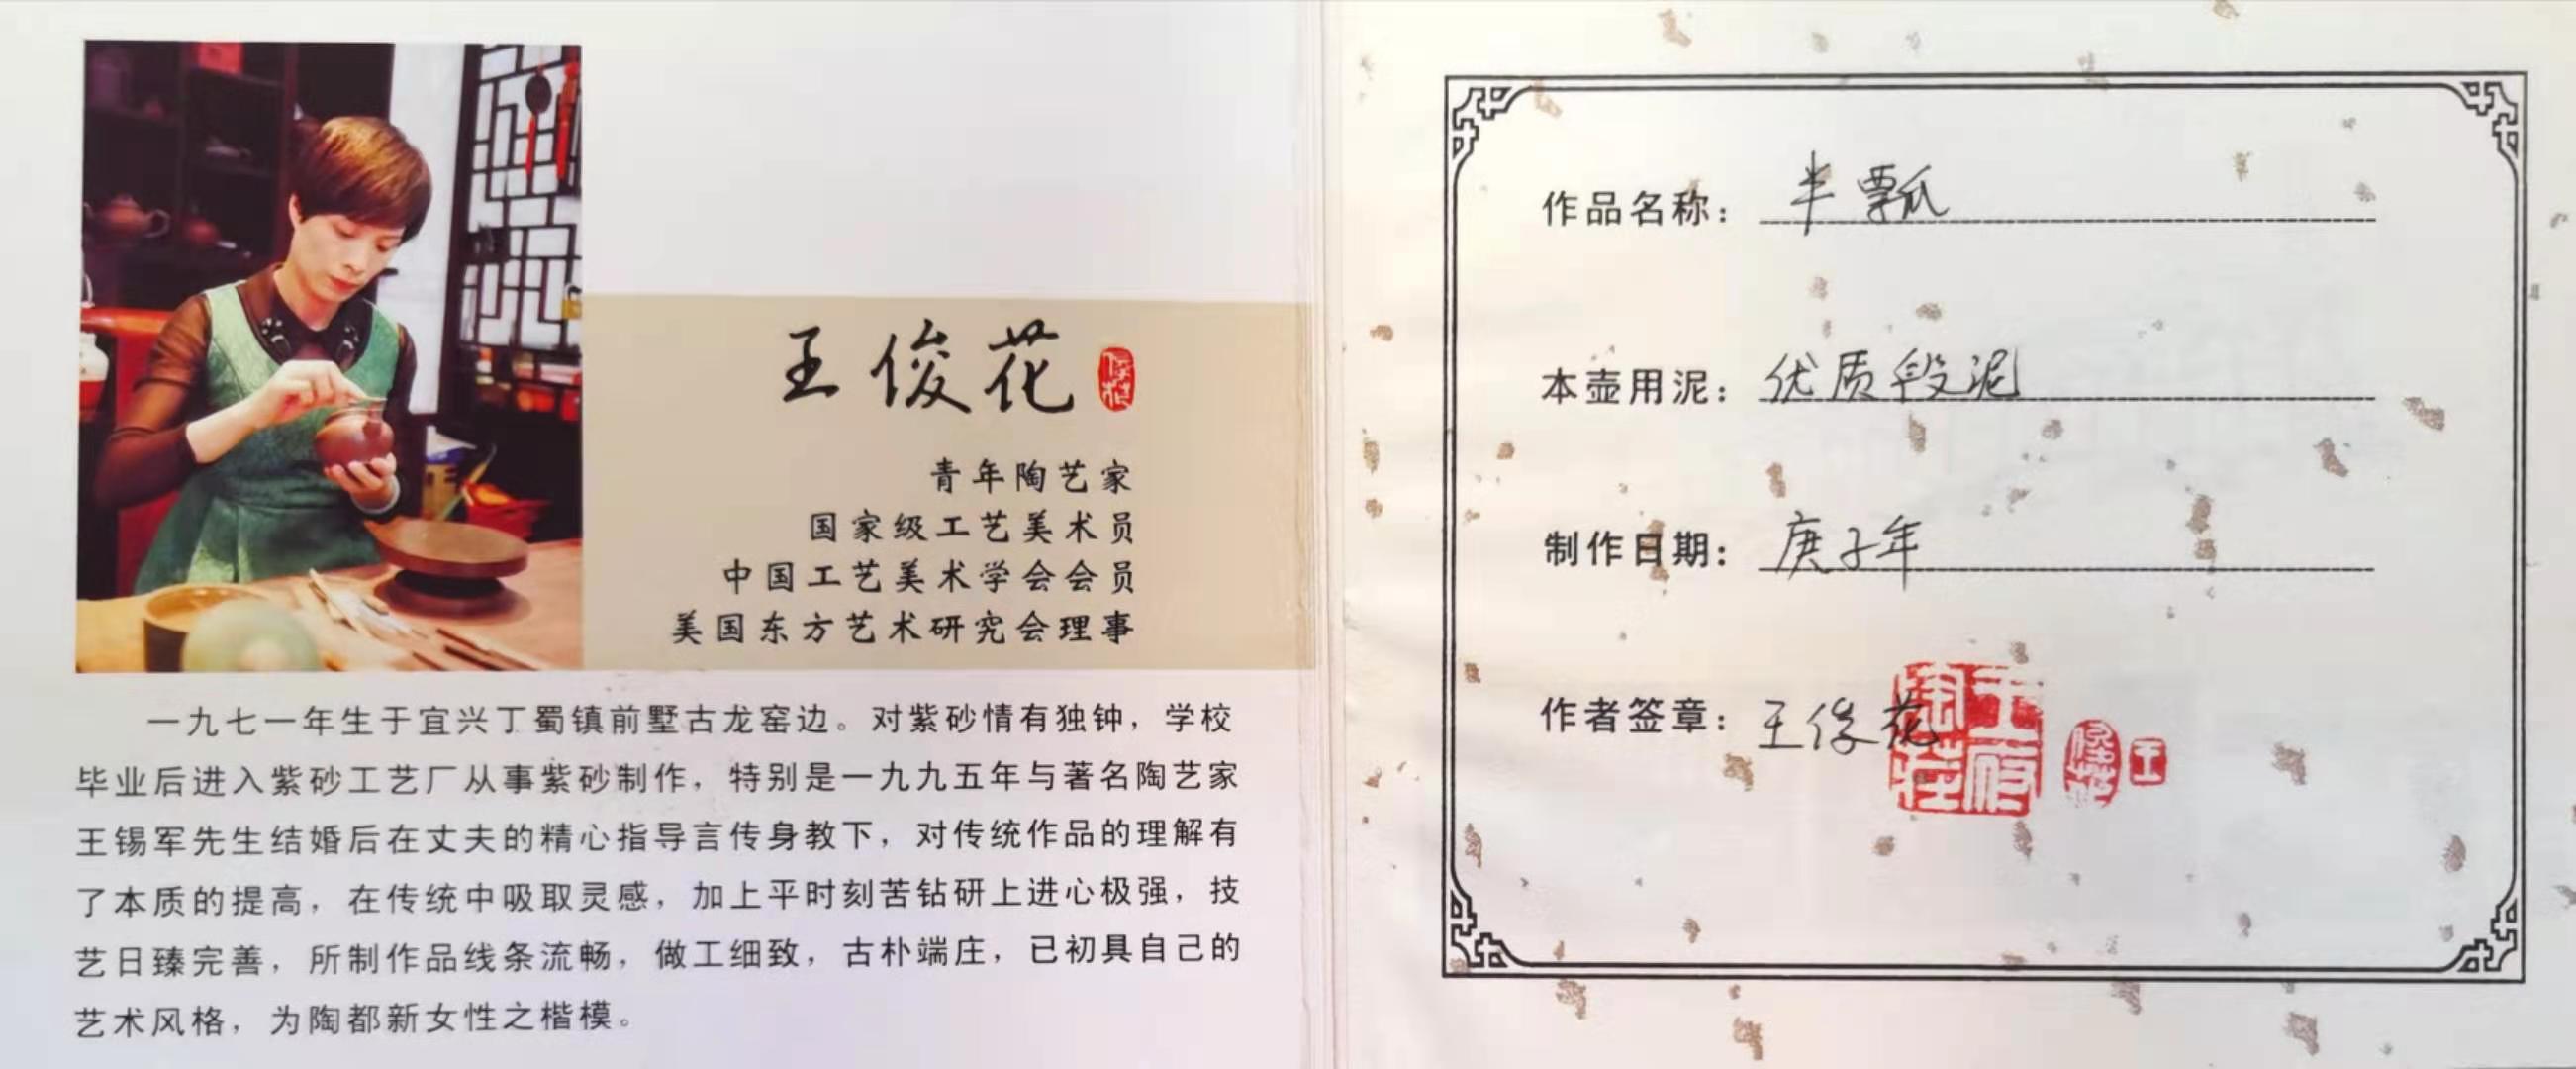 王俊花
俊花
青年陶艺家
国家级工艺美术员
中国工艺美术学会会员
美国东方艺术研究会理事
一九七一年生于宜兴丁蜀镇前墅古龙窑边。对紫砂情有独钟，学校
毕业后进入紫砂工艺厂从事紫砂制作，特别是一九九五年与著名陶艺家
王锡军先生结婚后在丈夫的精心指导言传身教下，对传统作品的理解有
了本质的提高，在传统中吸取灵感，加上平时刻苦钻研上进心极强，技
艺日臻完善，所制作品线条流畅，做工细致，古朴端庄，已初具自己的
艺术风格，为陶都新女性之楷模。
作品名称：半瓢
本壶用泥：优质段泥
制作日期：庚子年
作者签章：王俊花
王府陶庄
俊花
王